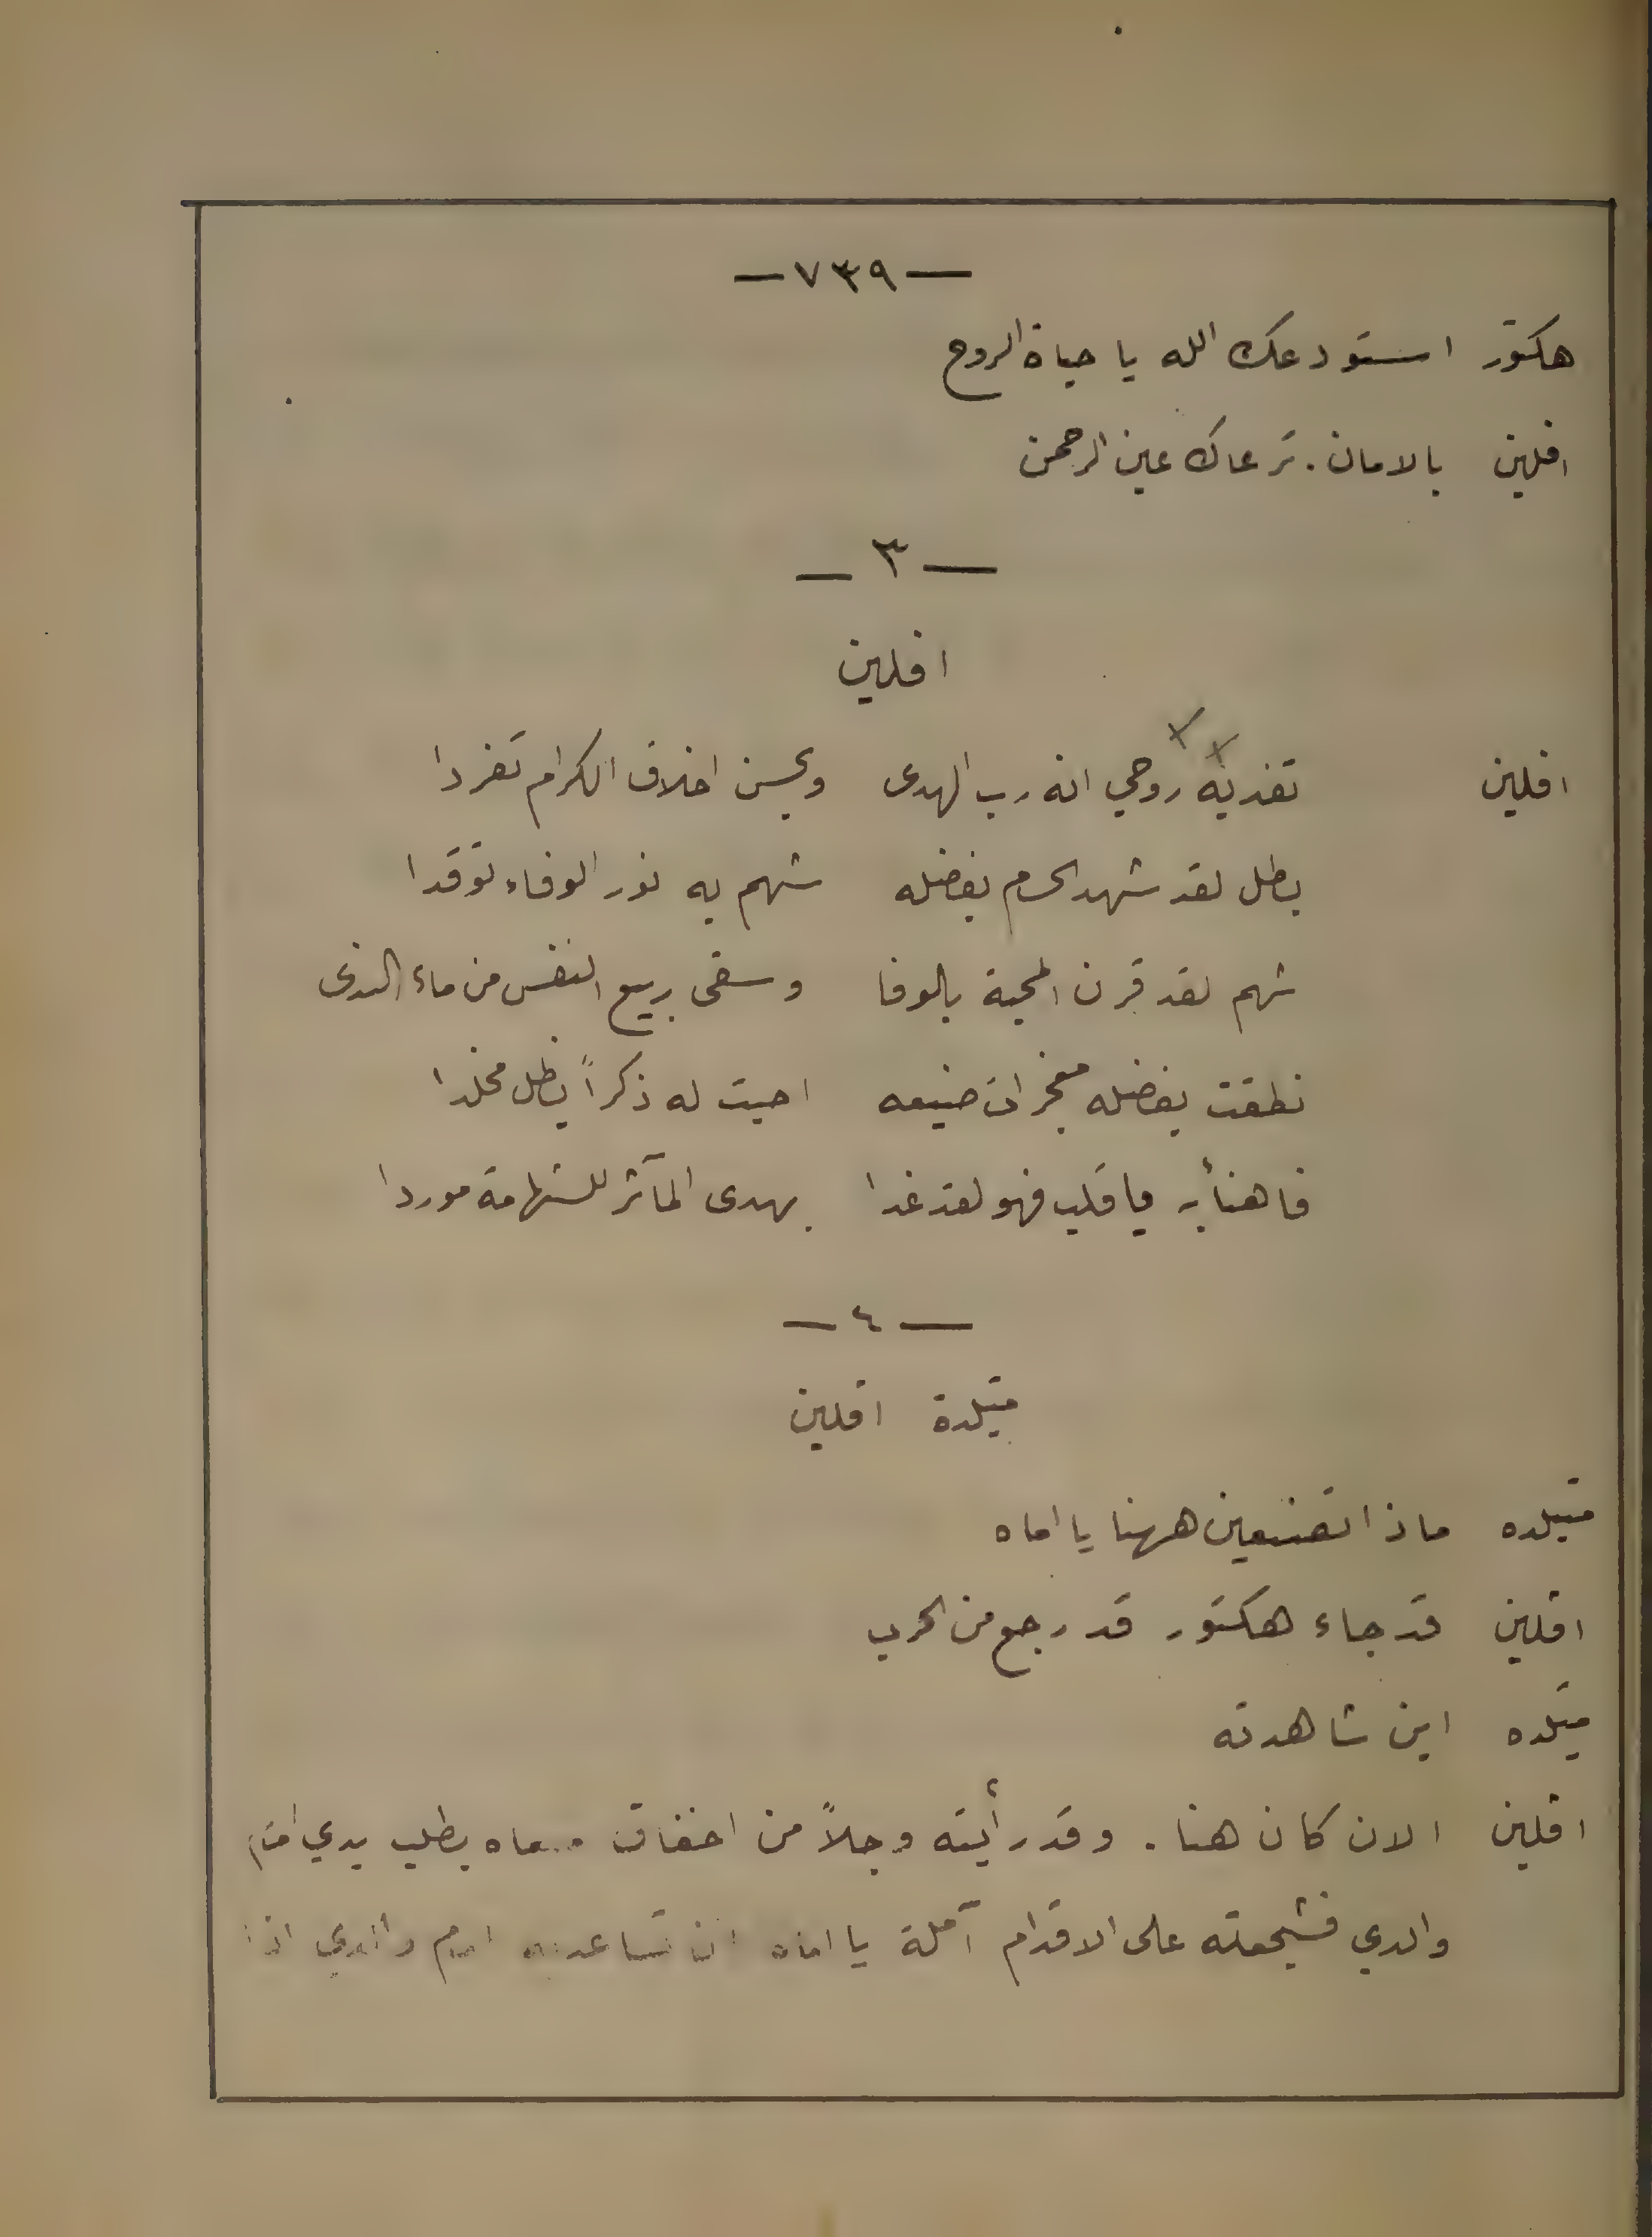 — ٧٣٩ —
هكتور استودعك الله يا حياة الروح
افلين بالامان . ترعاك عين الرحمن
— ٣ —
افلين
افلين تفديه روحي انه رب الهدى وبحسن اخلاق الكرام تفردا
بطل لقد شهد الحسام بفضله شهم به نور الوفاء توقدا
شهم لقد قرن المحبة بالوفا وسقى ربيع النفس من ماء الندى
نطقت بفضله معجزات صنيعه احيت له ذكراً يظل مخلدا
فاهنأ به يا قلب فهو لقد غدا بهدى المآثر للشهامة موردا
— ٤ —
متيلدة افلين
متيلده ماذا تصنعين ههنا يا اماه
افلين قد جاء هكتور قد رجع من الحرب
متيلده اين شاهدته
افلين الان كان هنا . وقد رأيته وجلاً من اخفاق مسعاه بطلب يدي امام
والدي فشجعته على الاقدام آملة يا اماه ان تساعديه امام والدي اذا